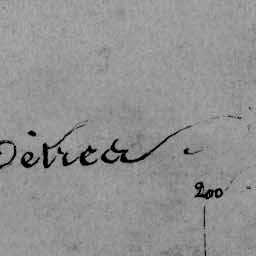 Petrea
200